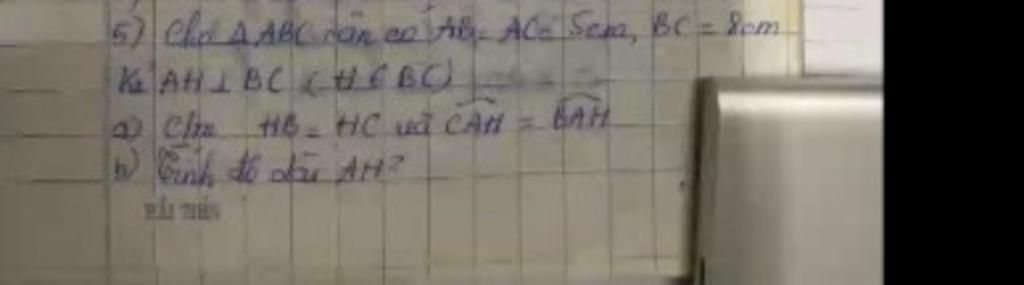 5) Cho ΔABC cân có AB = AC = 5cm, BC = 8cm
Kẻ AH ⊥ BC (H ∈ BC)
a) C/m HB = HC và \widehat{CAH} = \widehat{BAH}
b) Tính độ dài AH?